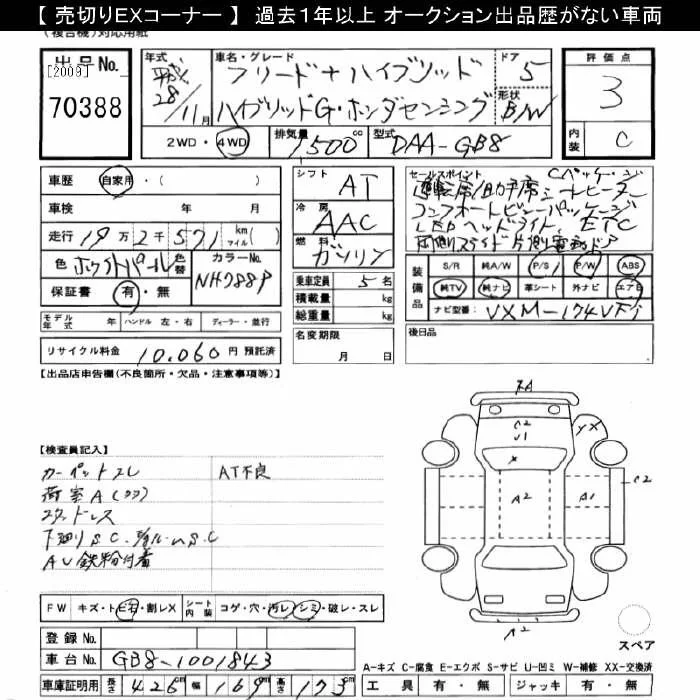 【 売切りEXコーナー 】 過去1年以上 オークション出品歴がない車両
(複合機)対応用紙
出品No.
[2009]
70388
年式
平成
28年
11月
車名・グレード
フリード+ハイブリッド
ハイブリッドG・ホンダセンシング
ドア
5
形状
B/W
評価点
3
内装
C
2WD・4WD
排気量
1500cc
型式
DAA-GB8
車歴 自家用・( )
車検 年 月
走行 19万2千571 km マイル( )
色 ホワイトパール 色替
カラーNo.
NH788P
保証書 有・無
シフト
AT
冷房
AAC
燃料
ガソリン
乗車定員 5名
積載量 kg
総重量 kg
セールスポイント Cパッケージ
運転席/助手席シートヒーター
コンフォートビューパッケージ
LEDヘッドライト、ETC
両側スライド片側電動ドア
装備品
S/R 純A/W P/S P/W ABS
純TV 純ナビ 革シート 外ナビ エアB
ナビ型番: VXM-174VFi
モデル年式 年 ハンドル 左・右 ディーラー・並行
リサイクル料金 10,060円 預託済
名変期限
月 日
後日品
【出品店申告欄(不良箇所・欠品・注意事項等)】
【検査員記入】
カーペットスレ AT不良
荷室A(クワ)
スタッドレス
下廻りSC.
AU鉄粉付着
FW キズ・ト・ヒ石・割レX シート内装 コゲ・穴・汚レ・シミ・破レ・スレ
登録No.
車台No. GB8-1001843
車庫証明用 長さ 426cm 幅 169cm 高さ 173cm
A2
U1
X
A2
A1
YX
C2
A2
スペア
A-キズ C-腐食 E-エクボ S-サビ U-凹ミ W-補修 XX-交換済
工具 有・無 ジャッキ 有・無